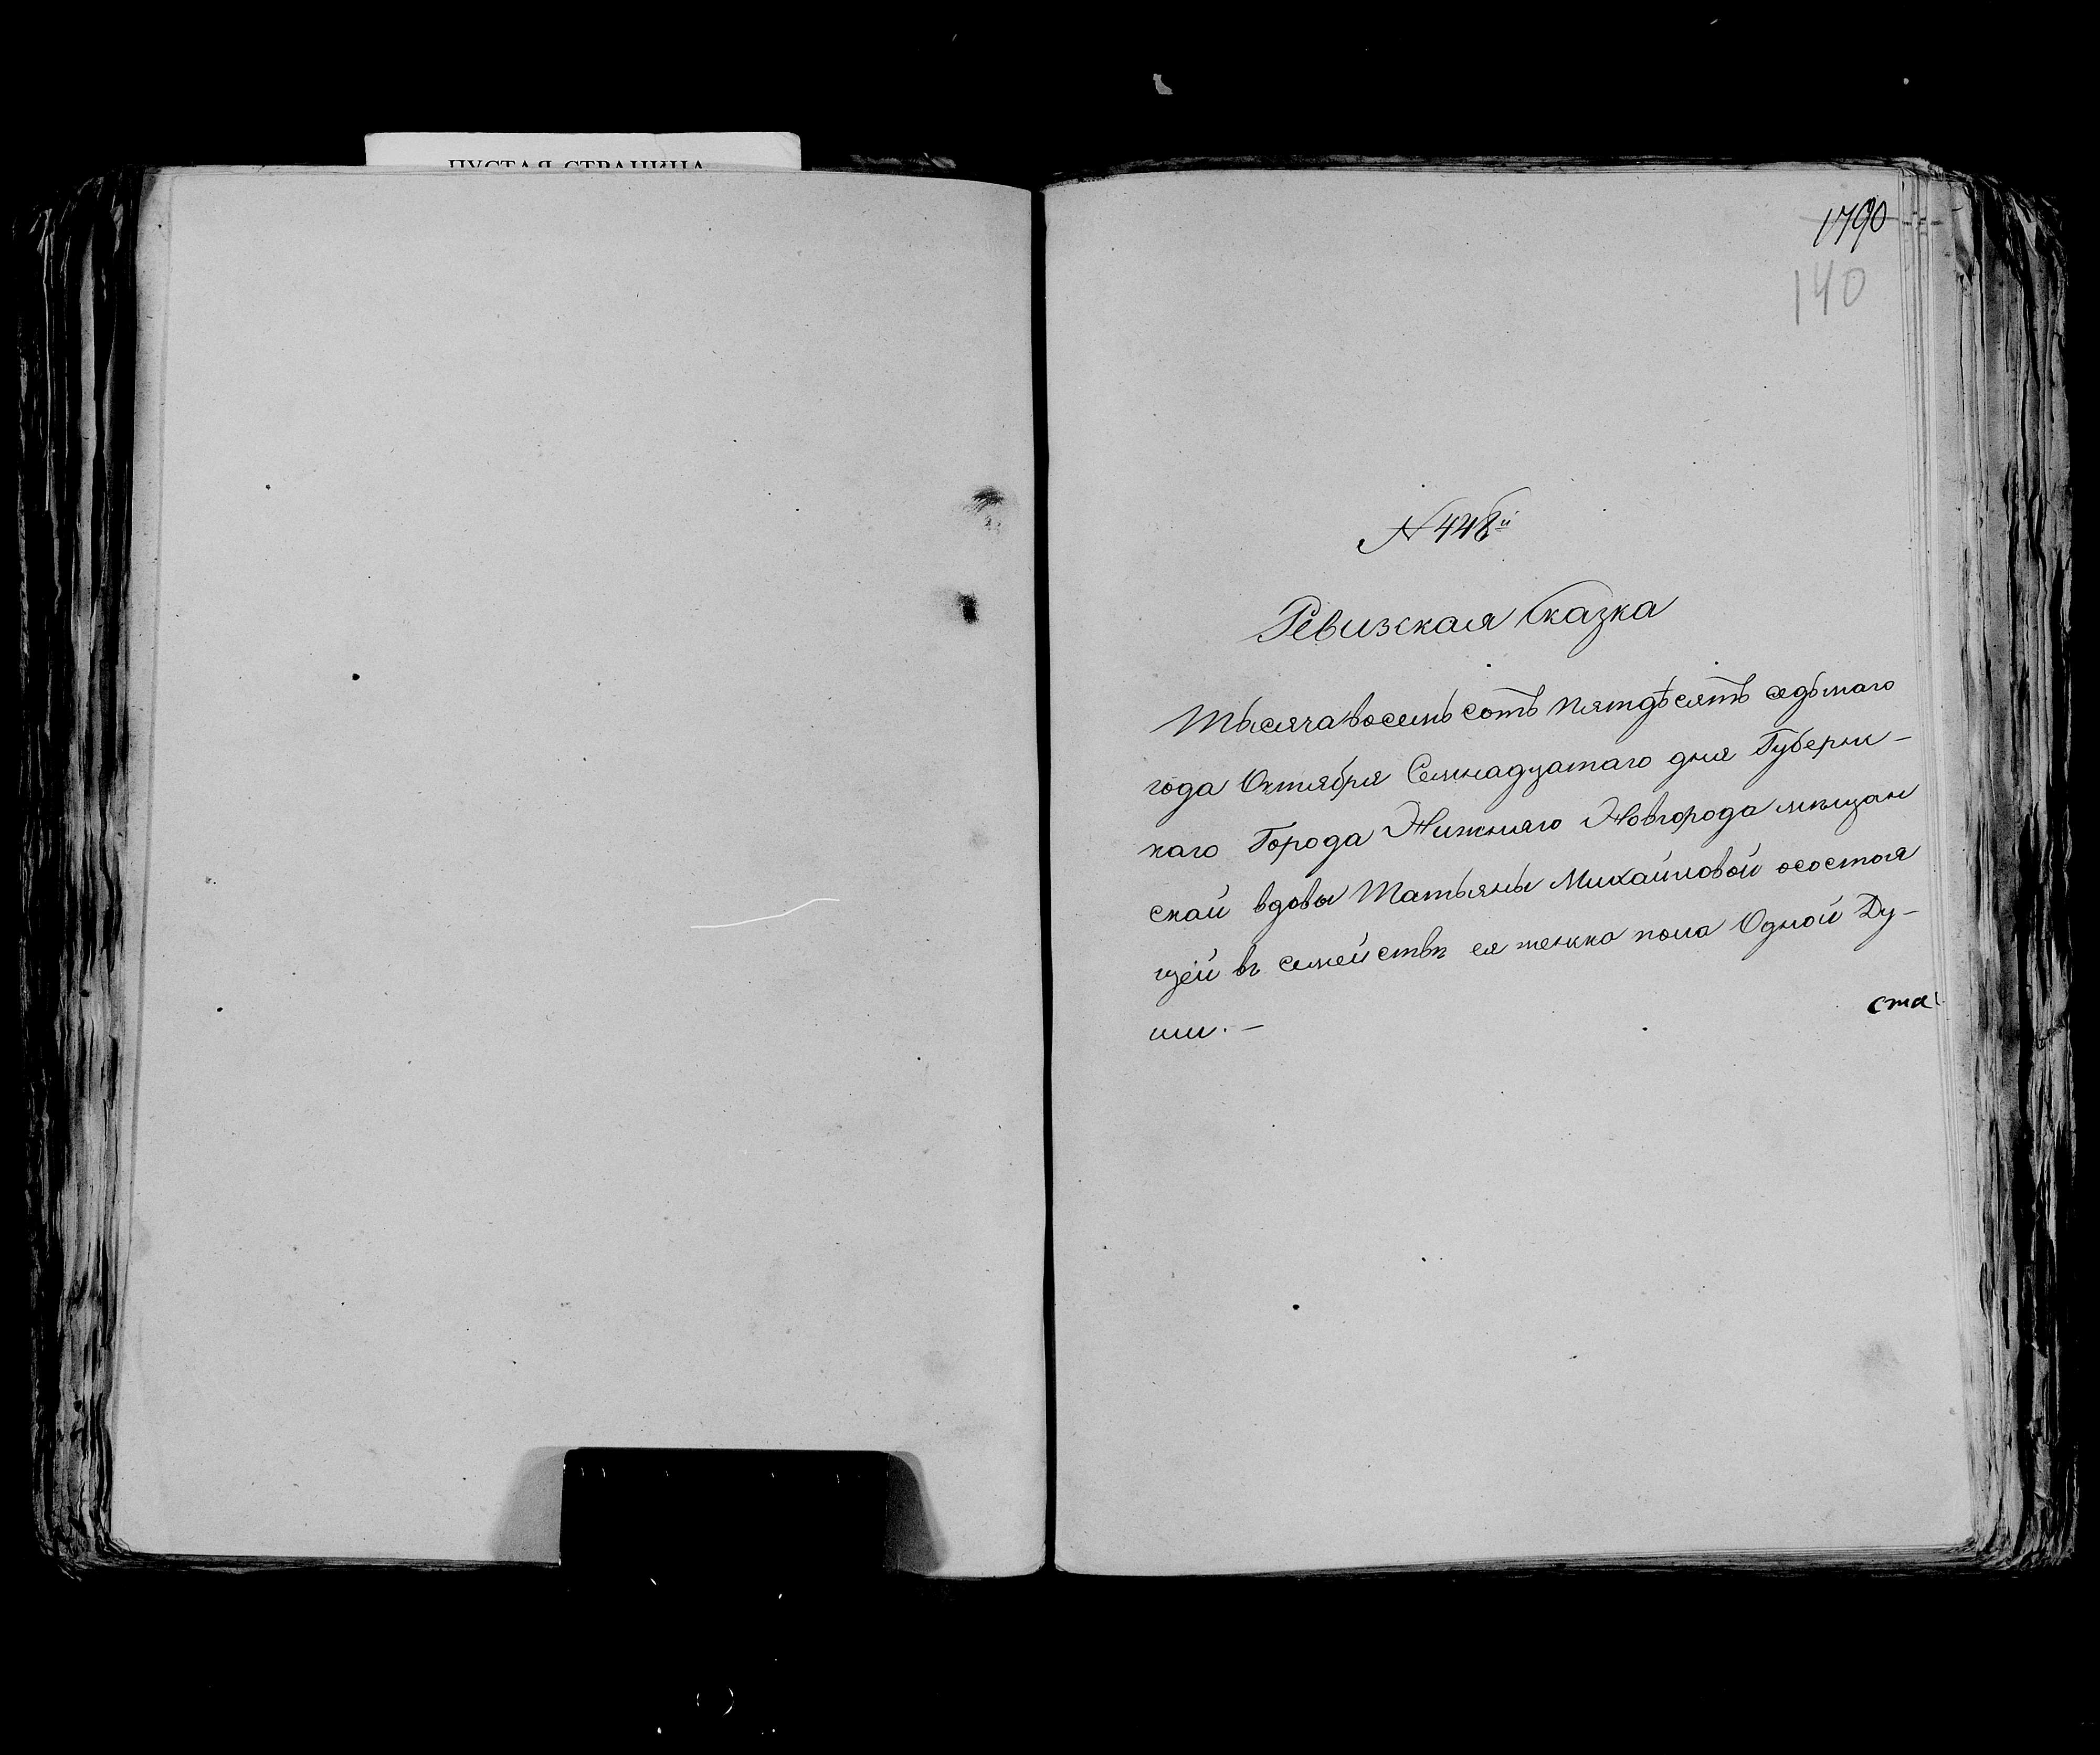 ПУСТАЯ СТРАНИЦА
1790
140
N 448й
Ревизская Сказка
Тысяча восемь сотъ пятдѣсятъ седьмаго
года Октября Семнадцатаго дня Губернс-
каго Города Нижняго Новгорода мѣщан
скай вдовы Татьяны Михайловой осостоя
щей въ семействѣ ея женска пола Одной Ду-
ши. —